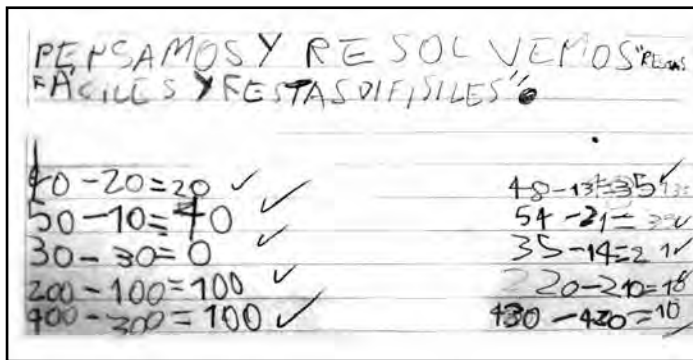 PENSAMOS Y RESOLVEMOS "RESTAS
FÁCILES Y RESTAS DIFISILES".
40-20=20 ✓
50-10=40 ✓
30-30=0 ✓
200-100=100 ✓
400-300=100 ✓
48-13=35 ✓
54-21= ✓
35-14=21 ✓
220-210=10
430-420=10 ✓